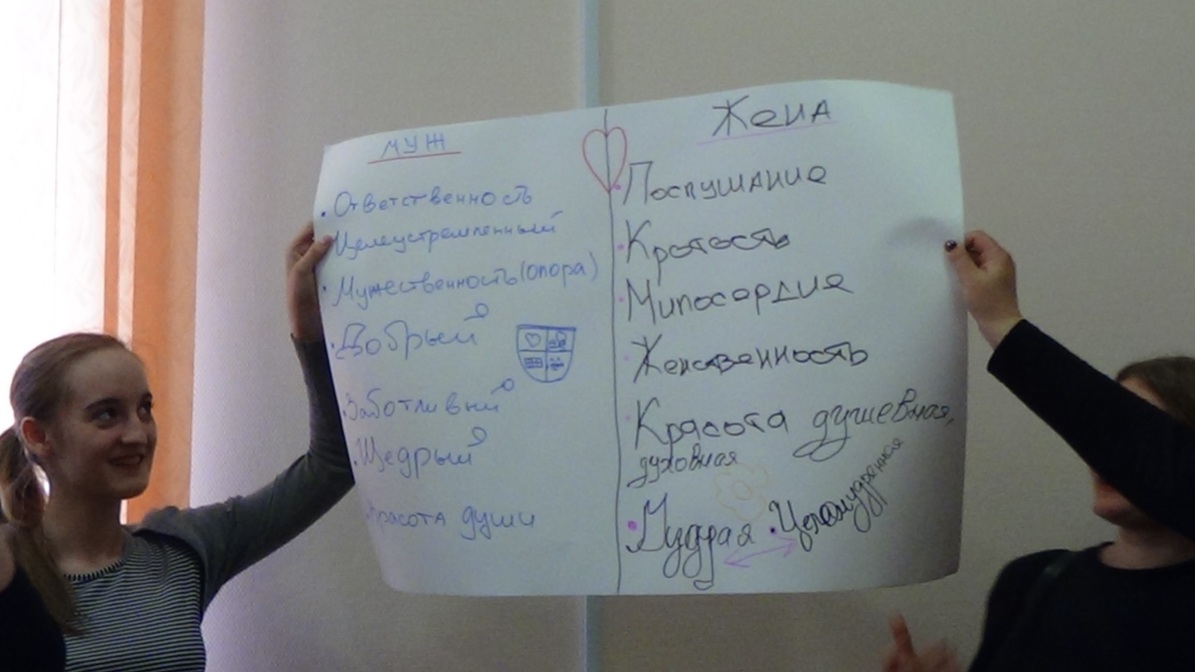 МУЖ
• Ответственность
• Целеустремленный
• Мужественность (опора)
• Добрый
• Заботливый
• Щедрый
• Красота души
Жена
• Послушание
• Кротость
• Милосердие
• Женственность
• Красота душевная,
духовная
• Мудрая • Целомудренная